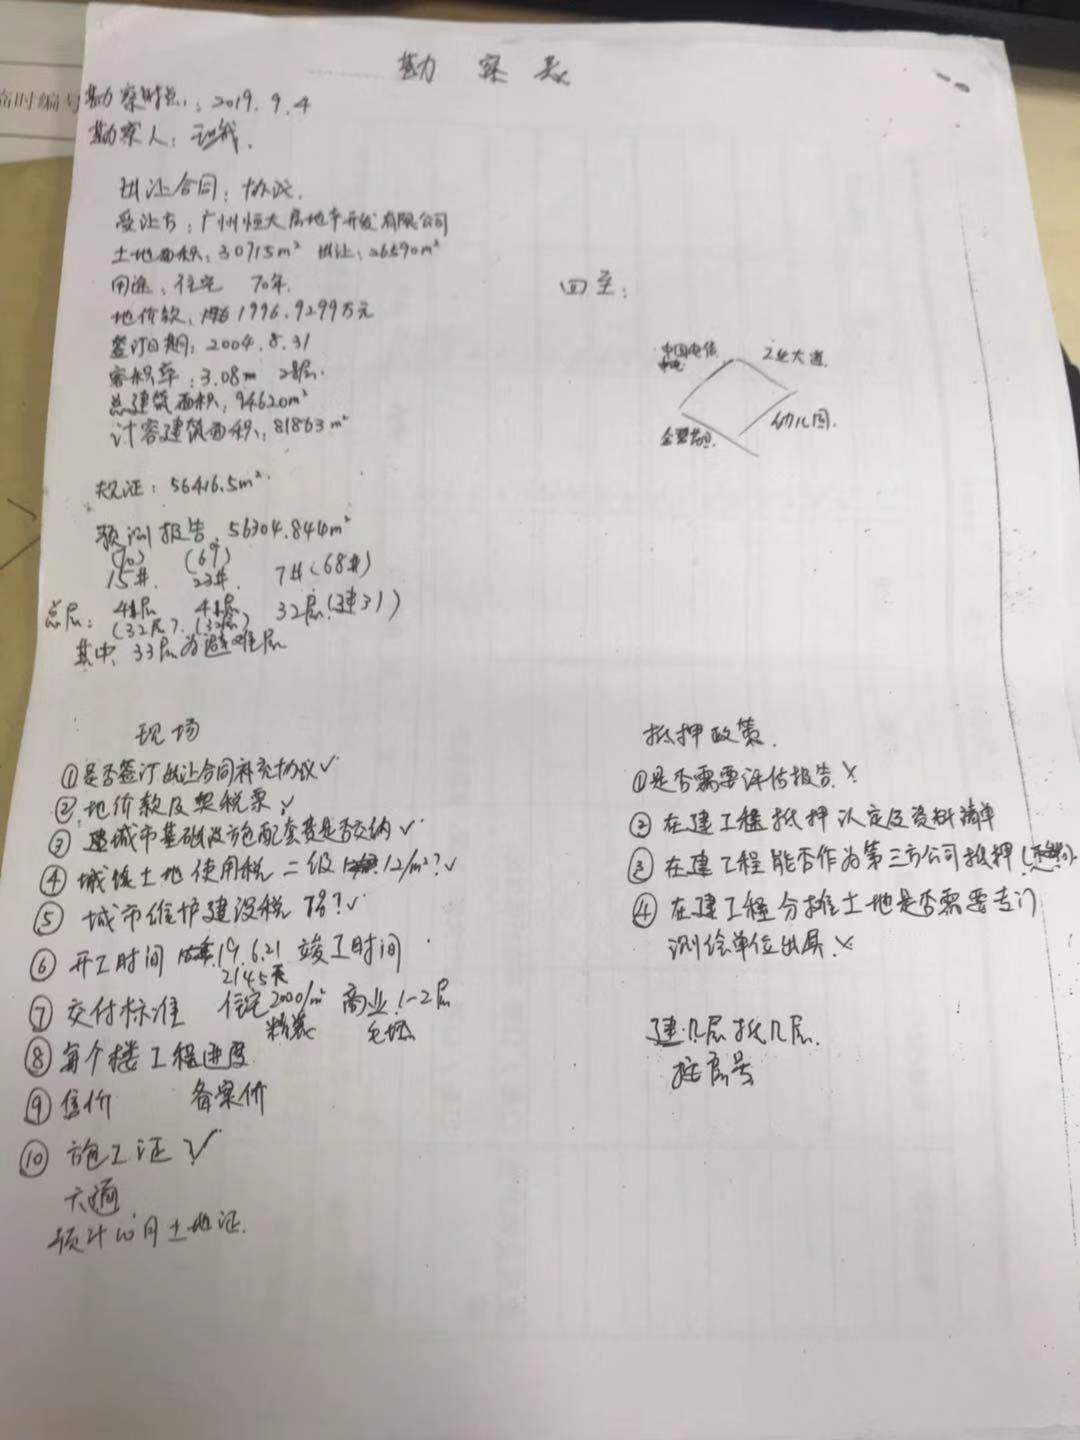 勘察表
勘察时点：2019.9.4
勘察人：
出让合同：协议.
受让方：广州恒大房地产开发有限公司
土地面积：30715m² 出让：26590m²
用途：住宅 70年.
地价款：1996.9299万元
签订日期：2004.8.31
容积率：3.08m
总建筑面积：94620m²
计容建筑面积：81863m²
四至：
中国电信
工业大道
幼儿园.
规证：56416.5m²
预测报告：56304.844m²
(70) (69)
15#. 23#. 7#(68#)
总层： 41层 41层 32层.(建31)
(32层). (32层)
其中：33层为避难层
现场
①是否签订出让合同补充协议✓
②地价款及契税票✓
③城市基础设施配套费是否交纳✓
④城镇土地使用税 二级 12/m²?✓
⑤城市维护建设税 7%?✓
⑥开工时间 19.6.21 竣工时间
2145天
⑦交付标准 住宅2000/m² 商业1-2层
精装 毛坯
⑧每个楼工程进度
⑨售价 备案价
⑩施工证✓
六通
预计10月土地证.
抵押政策.
①是否需要评估报告×
②在建工程抵押认定及资料清单
③在建工程能否作为第三方公司抵押
④在建工程分摊土地是否需要专门
测绘单位出具×
建几层抵几层.
挂房号